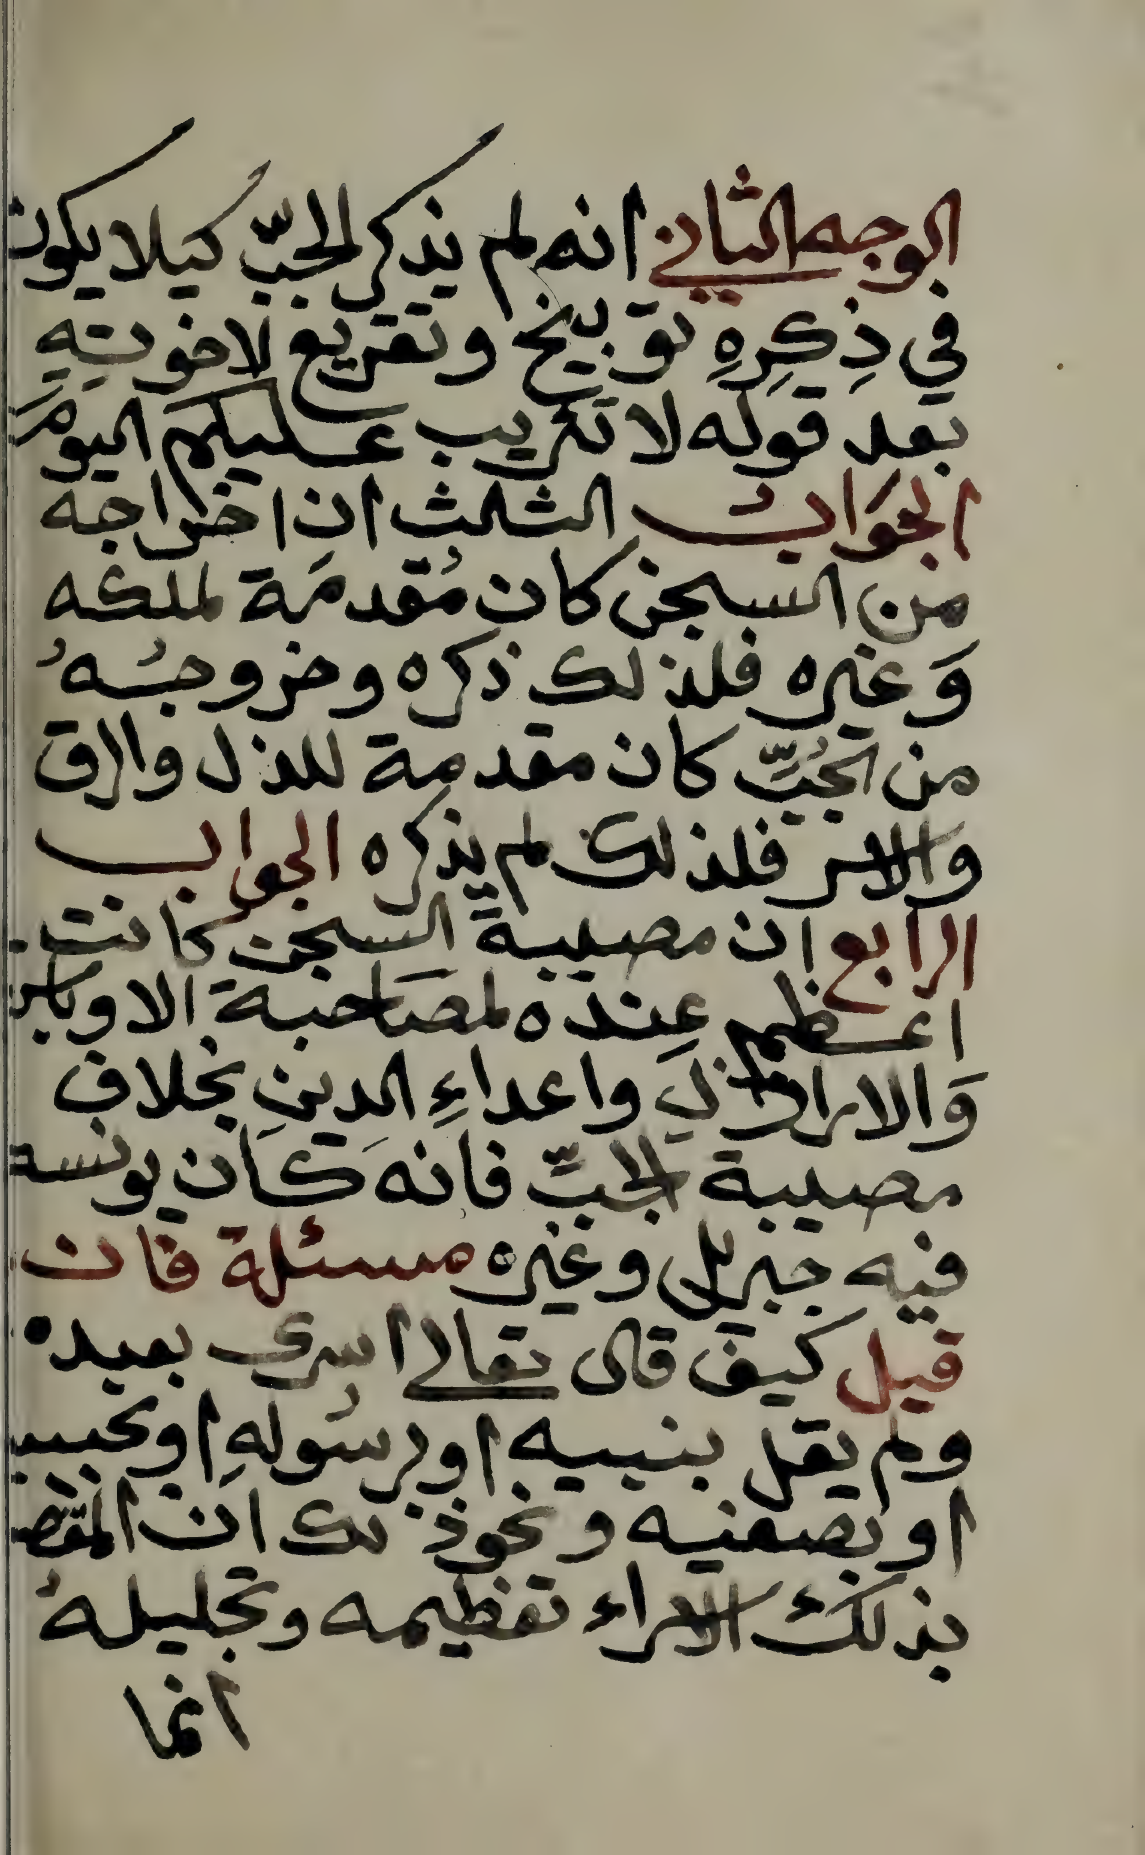 الوجه الثاني انه لم يذكر الجبّ كيلا يكون
في ذِكِرِهِ توبيخ وتقريع لاخوتِهِ
بعد قوله لا تثريب عليكم اليومَ
الجَوَابُ الثلث ان اخراجه
من السجن كان مُقدمَة لملكه
وَغيره فلذلك ذكره وخروجُهُ
من الجُبِّ كان مقدمة للذل والرق
والاسر فلذلك لم يذكره الجواب
الرابع ان مصيبة السجن كانت
اعظم عِنده لمصَاحبة الاوباش
وَالاراذلِ واعداءِ الدينِ بخلاف
مصيبة الجبّ فانه كان يونسه
فيه جبريل وغيره مسئلة فان
قيل كيف قال تعالى اسرى بعبده
ولم يقل بنبيه او برسُولهِ او بحبيبه
او بصفيه ونحو ذلك ان المقصود
بذلك الاسراء تعظيمه وتجليلهُ
انما